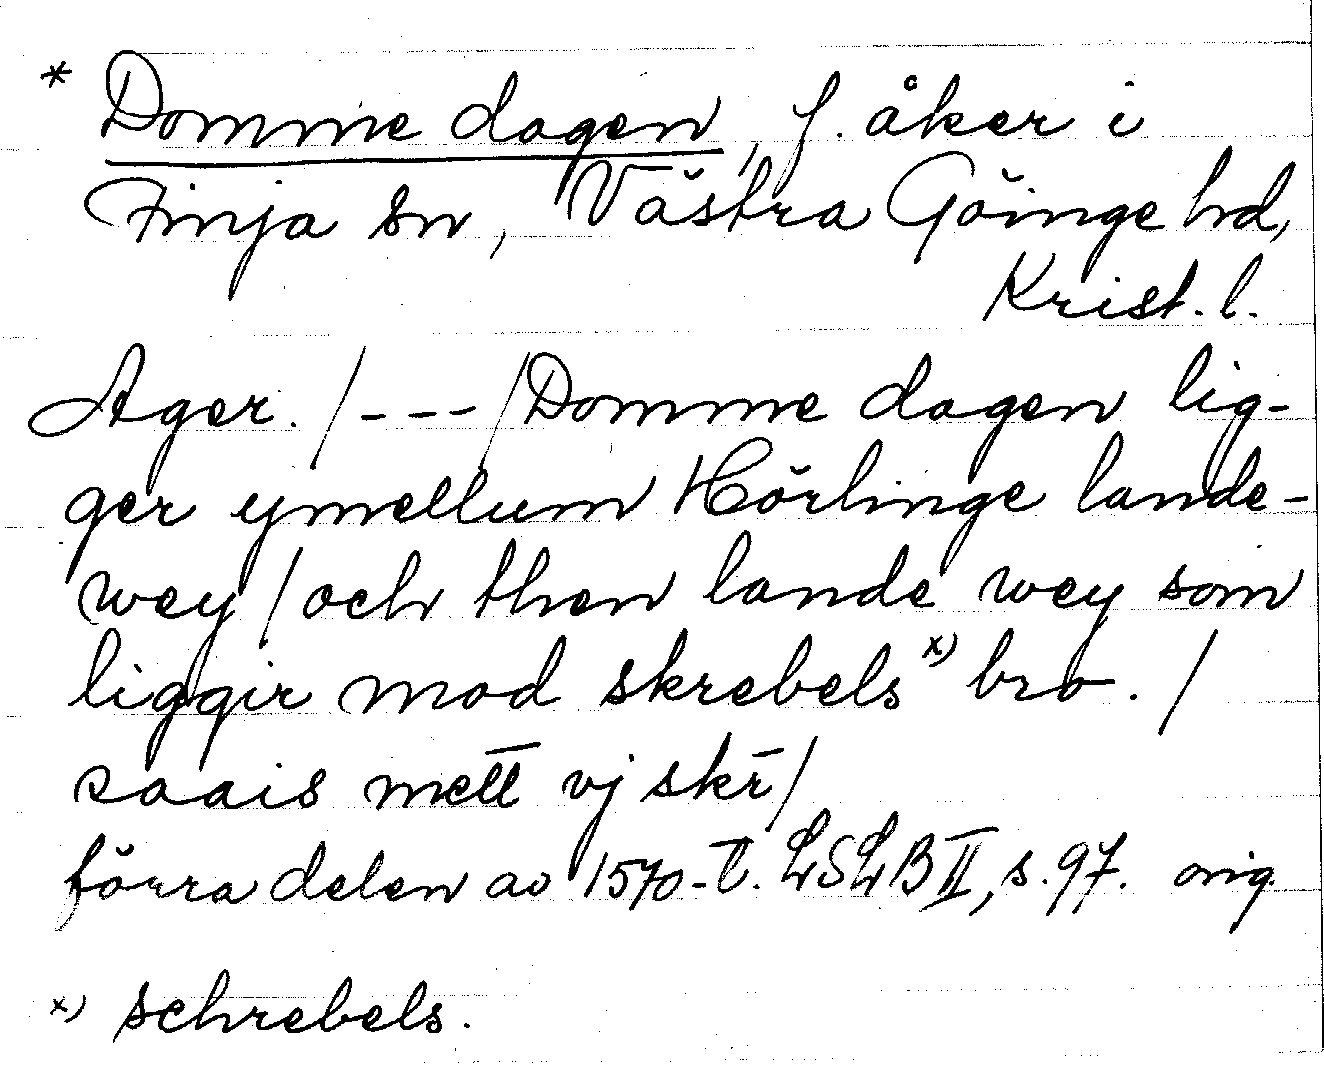 * Domme dagen, f. åker i
Finja sn, Västra Göinge hd,
Krist. l.
Ager. /---/ Domme dagen lig-
ger ymellum Hörlinge lande-
wey / och then lande wey som
liggir mod skrebels x) bro. /
saais mett vj skr /
förra delen av 1570-t. LSLB II, s. 97. orig.
x) schrebels.